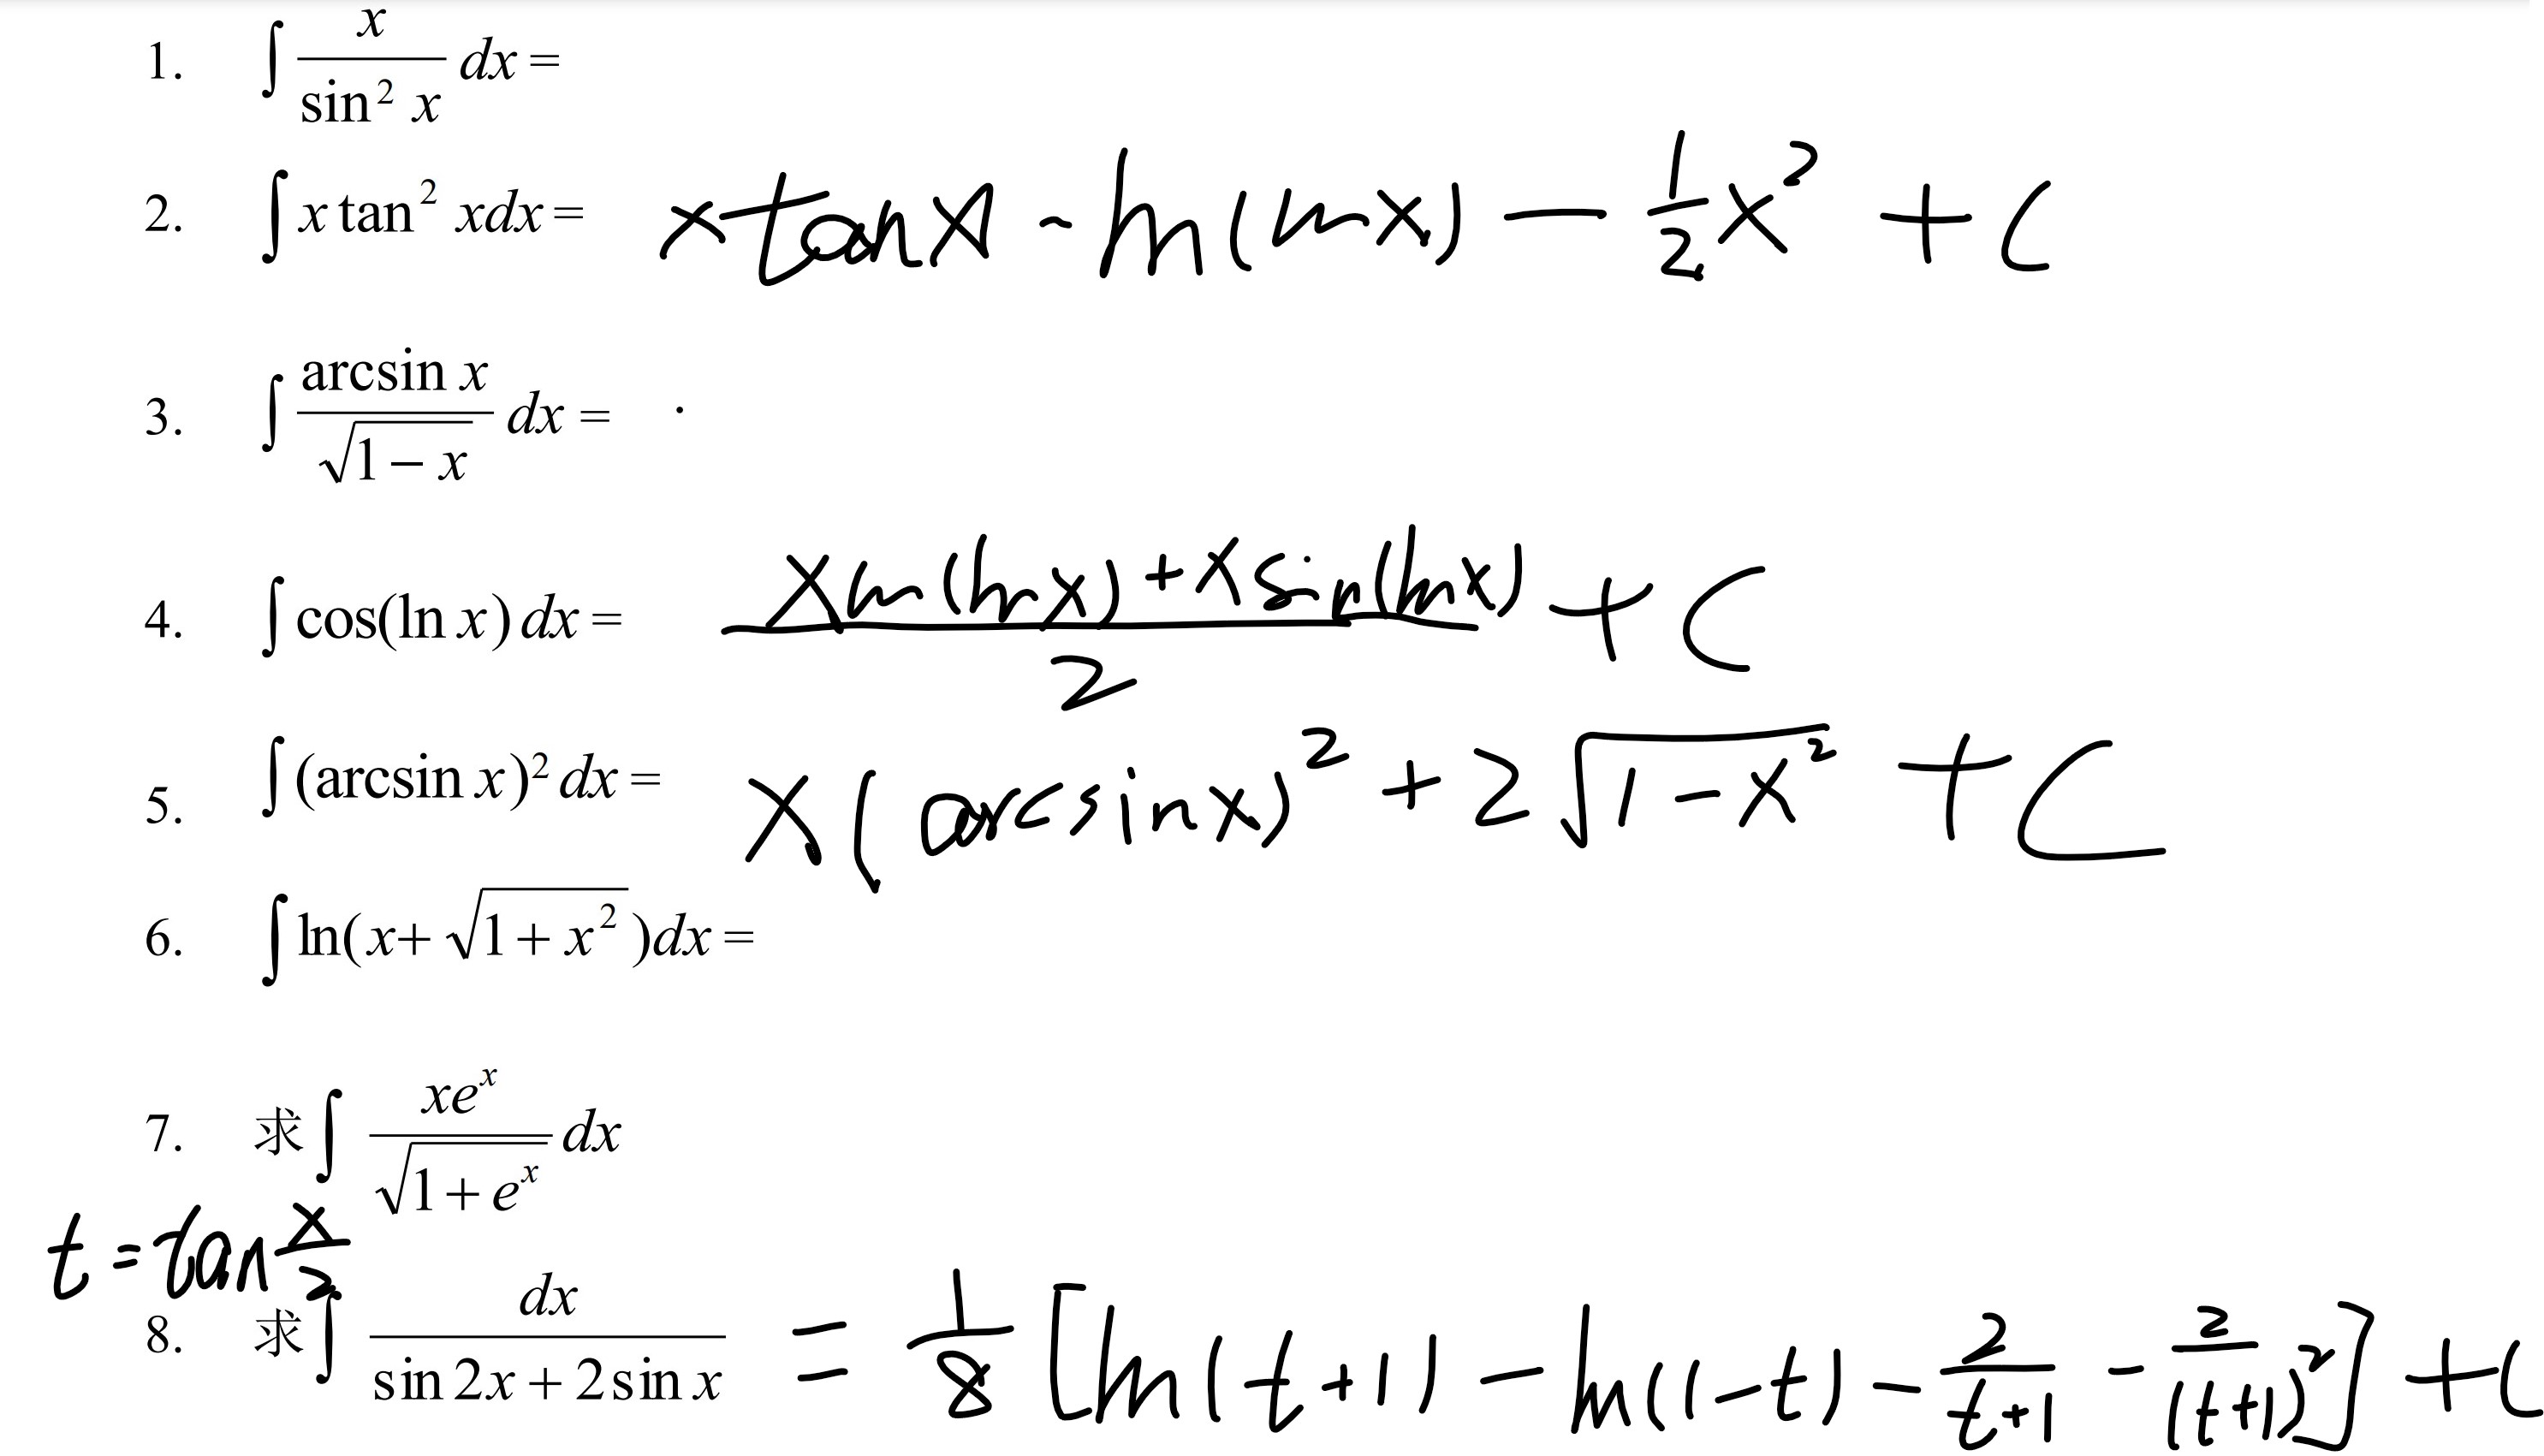 1. ∫ x / sin² x dx =
2. ∫ x tan² x dx = x tan x - ln(ln x) - 1/2 x² + C
3. ∫ arcsin x / √(1 - x) dx = .
4. ∫ cos(ln x) dx = (x ln(ln x) + x sin(ln x)) / 2 + C
5. ∫ (arcsin x)² dx = x(arcsin x)² + 2√(1 - x²) + C
6. ∫ ln(x + √(1 + x²)) dx =
7. 求 ∫ xeˣ / √(1 + eˣ) dx
t = tan x/2
8. 求 ∫ dx / (sin 2x + 2 sin x) = 1/8 [ln(t+1) - ln(1-t) - 2/(t+1) - 2/(t+1)²] + C